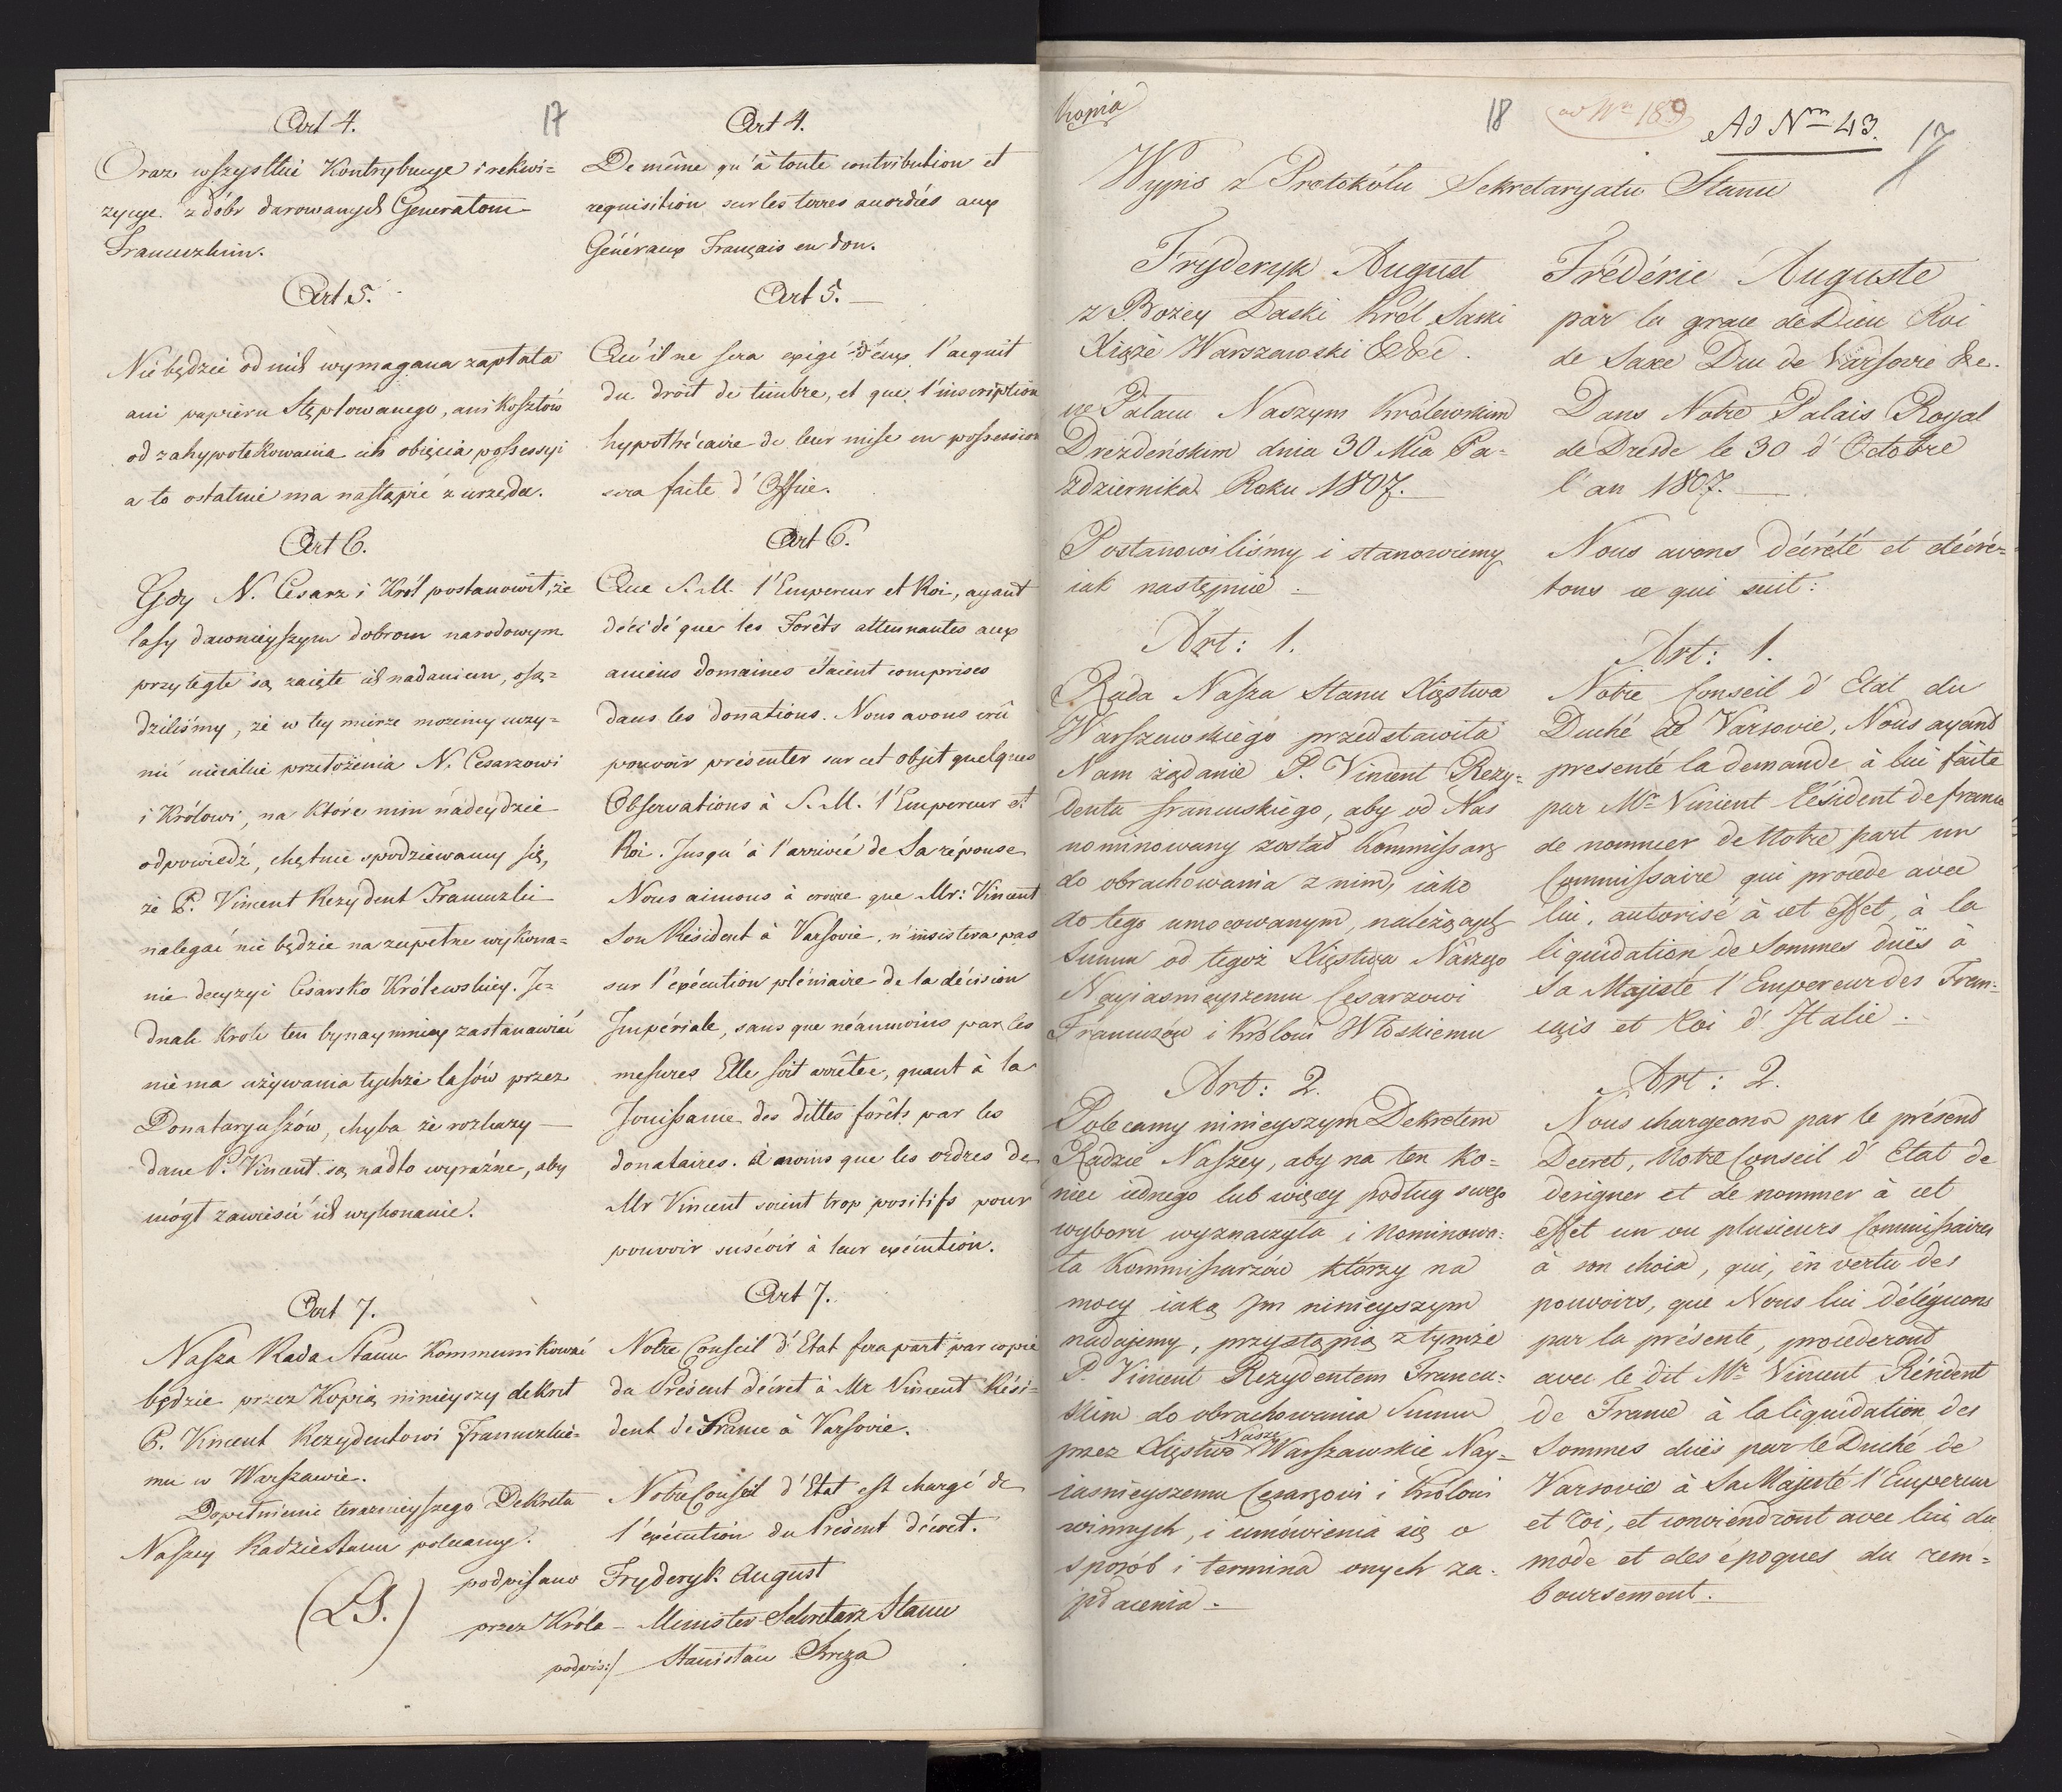 17
Art 4.
Oraz wszystkie Kontrybucye i rekwi=
zycye z dóbr darowanych Generałom
Francuzkim.
Art 5.
Nie będzie od nich wymagana zapłata
ani papieru Stęplowanego, ani Kosztów
od zahypotekowania ich obięcia possessyi
a to ostatnie ma nastąpić z urzędu.
Art 6.
Gdy N. Cesarz i Król postanowił, że
lasy dawnieyszym dobrom narodowym
przyległe są zaięte ich nadaniem, osą=
dziliśmy, że w tey mierze możemy uczy=
nić niektóre przełożenia N. Cesarzowi
i Królowi, na które nim nadeydzie
odpowiedź, chętnie spodziewamy się,
że P. Vincent Rezydent Francuzki
nalegać nie będzie na zupełne wykona=
nie decyzyi Cesarsko Królewskiey. Je=
dnak krok ten bynaymniey zastanawiać
nie ma używania tychże lasów przez
Donataryuszów, chyba że rozkazy —
dane P. Vincent są nadto wyraźne, aby
mógł zawiesić ich wykonanie.
Art 7.
Nasza Rada Stanu Kommunikować
będzie przez Kopią ninieyszy dekret
P. Vincent Rezydentowi Francuzkie=
mu w Warszawie.
Dopełnienie teraznieyszego Dekretu
Naszey Radzie Stanu polecamy.
Art 4.
De même qu'à toute contribution et
requisition sur les terres accordées aux
Généraux Français en don.
Art 5. —
Qu'il ne sera exigé d'eux l'acquit
du droit de timbre, et que l'inscription
hypothécaire de leur mise en possession
sera faite d'Office.
Art 6.
Que S. M. l'Empereur et Roi, ayant
décidé que les Forêts attennantes aux
anciens domaines étaient comprises
dans les donnations. Nous avons crû
pouvoir présenter sur cet objet quelques
Observations à S. M. l'Empereur et
Roi. Jusqu'à l'arrivée de Sa réponse
Nous aimons à croire que Mr: Vincent
Son Résident à Varsovie, n'insistera pas
sur l'exécution plénière de la décision
Impériale, sans que néanmoins par les
mesures Elle soit arrêtée, quant à la
Jouissance des dittes forêts par les
donataires. À moins que les ordres de
Mr Vincent soient trop positifs pour
pouvoir suscéoir à leur exécution.
Art 7.
Notre Conseil d'Etat fera part par copie
du Présent décret à Mr Vincent Rési=
dent de France à Varsovie.
Notre Conseil d'Etat est chargé de
l'exécution du Présent décret.
(LS.) podpisano Fryderyk August
przez Króla — Minister Sekretarz Stanu
podpis:/ Stanisław Breza
Kopia
18
ad Nm 189
Ad Nm 43.
17
Wypis z Protokółu Sekretaryatu Stanu
Fryderyk August
z Bożey Łaski Król Saski
Xiąże Warszawski &c &c.
w Pałacu Naszym Królewskim
Drezdeńskim dnia 30 Mca Pa=
zdziernika Roku 1807. —
Postanowiliśmy i stanowiemy
iak następuie.
Art: 1.
Rada Nasza Stanu Xięstwa
Warszawskiego przedstawiła
Nam żądanie P. Vincent Rezy=
denta francuskiego, aby od Nas
nominowany został Kommissarz
do obrachowania z nim, iako
do tego umocowanym, należących
Summ od tegoż Xięstwa Naszego
Nayiasnieyszemu Cesarzowi
Francuzów i Królowi Włoskiemu
Art: 2.
Polecamy ninieyszym Dekretem
Radzie Naszey, aby na ten ko=
niec iednego lub więcey podług swego
wyboru wyznaczyła i Nominowa=
ła Kommissarzów którzy na
mocy iaką Im ninieyszym
nadajemy, przystąpią z tymże
P. Vincent Rezydentem Francu=
skim do obrachowania Summ
przez Xięstwo Nasze Warszawskie Nay=
iasnieyszemu Cesarzowi i Królowi
winnych, i umówienia się o
sposób i termina onych za=
płacenia. —
Frédéric Auguste
par la grace de Dieu Roi
de Saxe Duc de Varsovie &c.
Dans Notre Palais Royal
de Dresde le 30 d'Octobre
l'an 1807. —
Nous avons décrété et décré=
tons ce qui suit:
Art: 1.
Notre Conseil d'Etat du
Duché de Varsovie, Nous ayant
presenté la demande à lui faite
par Mr Vincent Résident de france
de nommer de Notre part un
Commissaire qui procede avec
lui, autorisé à cet effet, à la
liquidation de Sommes duës à
Sa Majesté l'Empereur des Fran=
çais et Roi d'Italie. —
Art: 2.
Nous chargeons par le présent
Decret, Notre Conseil d'Etat de
designer et de nommer à cet
effet un ou plusieurs Commissaires
à son choix, qui, en vertu des
pouvoirs, que Nous lui déléguons
par la présente, procederont
avec le dit Mr Vincent Résident
de France à la liquidation des
Sommes duës par le Duché de
Varsovie à Sa Majesté l'Empereur
et Roi, et conviendront avec lui du
mode et des époques du rem=
boursement. —